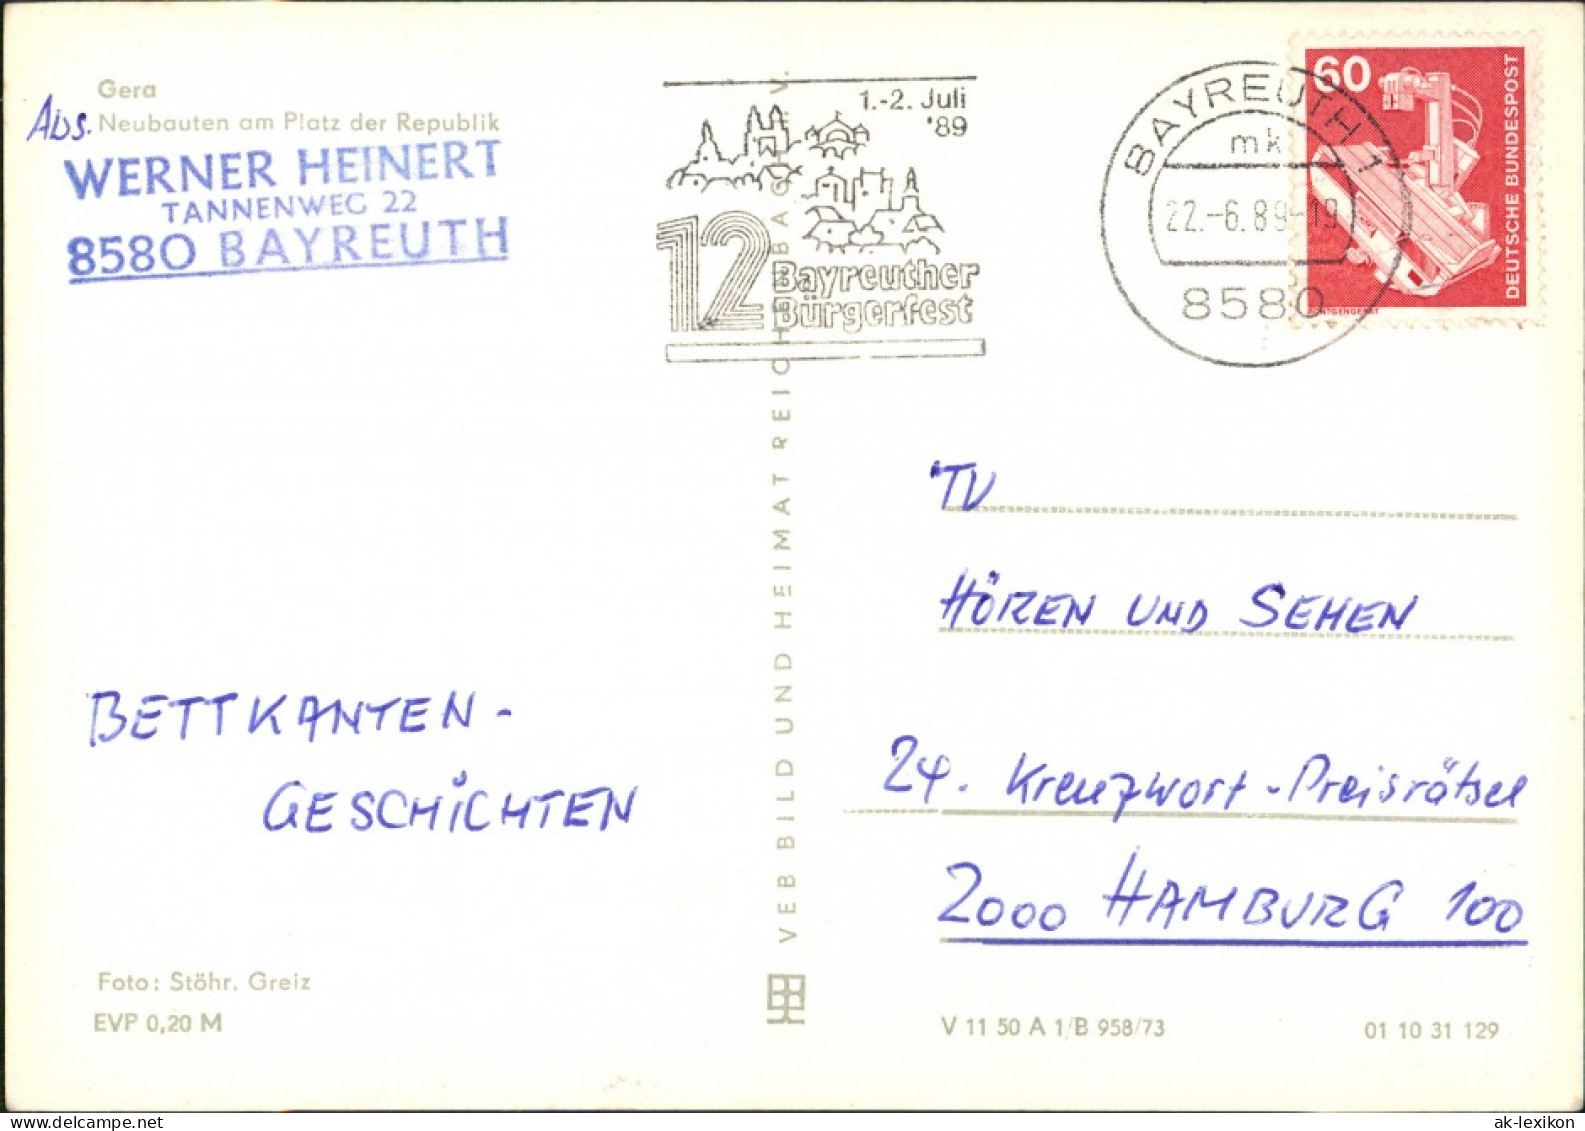 Gera
Abs. Neubauten am Platz der Republik
WERNER HEINERT
TANNENWEG 22
8580 BAYREUTH
1.-2. Juli
'89
12
Bayreuther
Bürgerfest
BAYREUTH 1
mk
22.-6.89-19
8580
60
DEUTSCHE BUNDESPOST
RÖNTGENGERÄT
VEB BILD UND HEIMAT REICHENBACH I. V.
TV
HÖREN UND SEHEN
24. Kreuzwort-Preisrätsel
2000 HAMBURG 100
BETTKANTEN-
GESCHICHTEN
Foto: Stöhr, Greiz
EVP 0,20 M
V 11 50 A 1/B 958/73
01 10 31 129
ak-lexikon